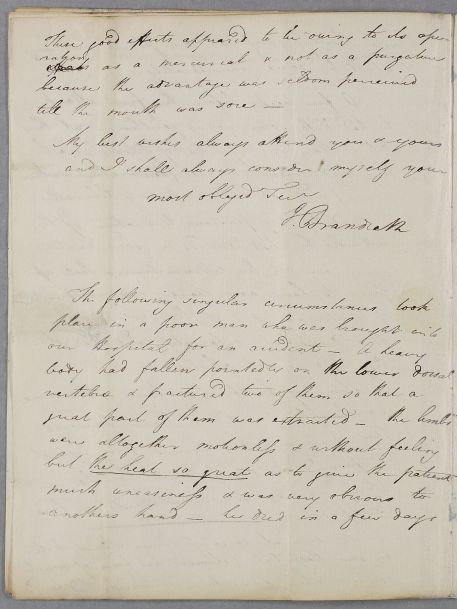 These good effects appeared to be owing to its ope
ration as a mercurial & not as a purgative
because the advantage was seldom perceived
till the mouth was sore —
My best wishes always attend you & yours
and I shall always consider myself your
most obliged Ser
J. Brandreth
The following singular circumstances took
place in a poor man who was brought into
our Hospital for an accident — A heavy
body had fallen pointedly on the lower dorsal
vertebræ & fractured two of them so that a
great part of them was extracted — the limbs
were altogether motionless & without feeling
but the heat so great as to give the patient
much uneasiness & was very obvious to
anothers hand — he died in a few days